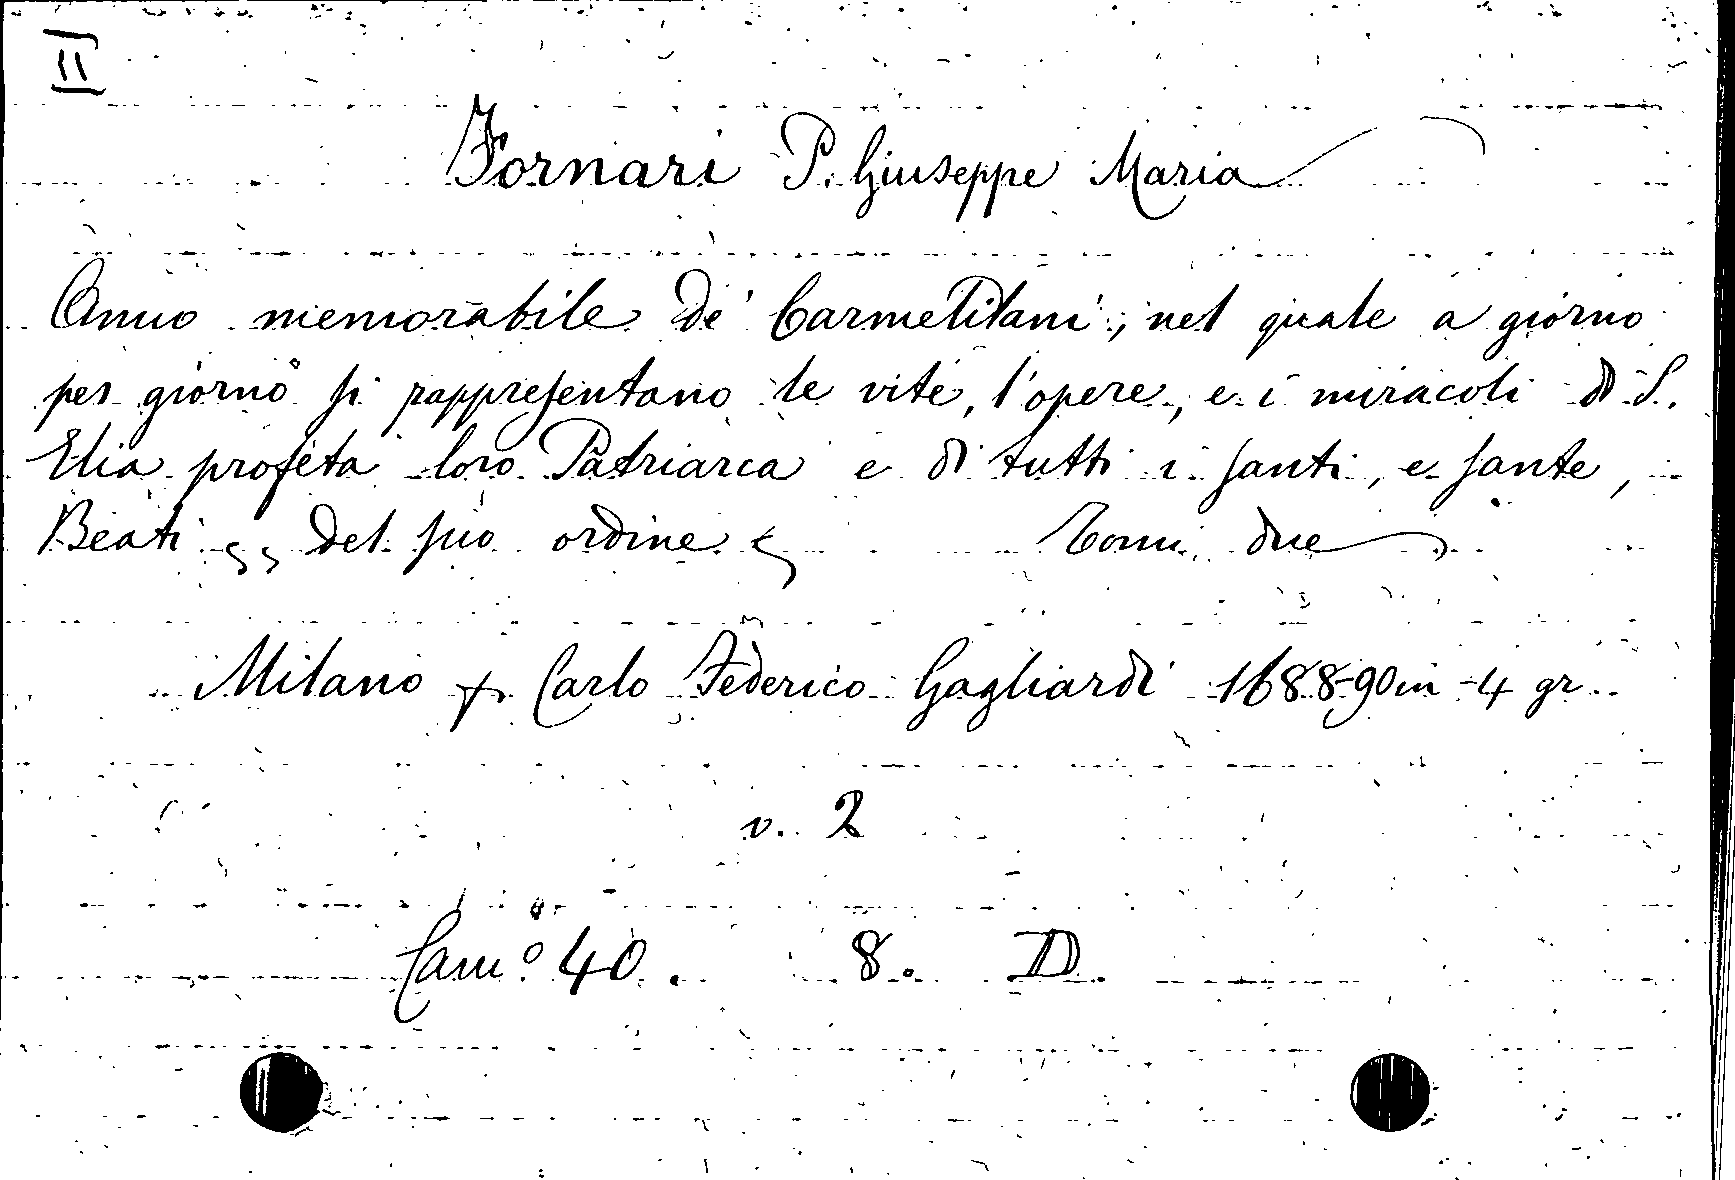 II
Fornari P. Giuseppe Maria
Anno memorabile de' Carmelitani, nel quale a giorno
per giorno si rappresentano le vite, l'opere, e i miracoli di S.
Elia profeta loro Patriarca e di tutti i santi, e sante,
Beati del suo ordine Tomi due
Milano Carlo Federico Gagliardi 1688-90 in-4 gr.
v. 2
Cam.º 40. 8. D.